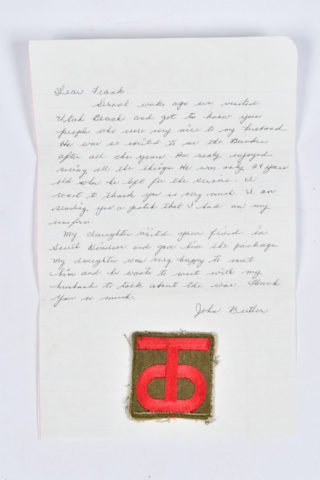 Dear Frank
Several weeks ago we visited
Utah Beach and got to know your
people who were very nice to my husband
He was so excited to see the Bunker
after all the years. He really enjoyed
seeing all the things. He was only 24 years
old when he left for the service. I
want to thank you so very much. I am
sending you a patch that I had on my
uniform.
My daughter visited your friend in
South and gave him the package
My daughter was very happy to meet
him and he wants to meet with my
husband to talk about the war. Thank
you so much.
John Butler